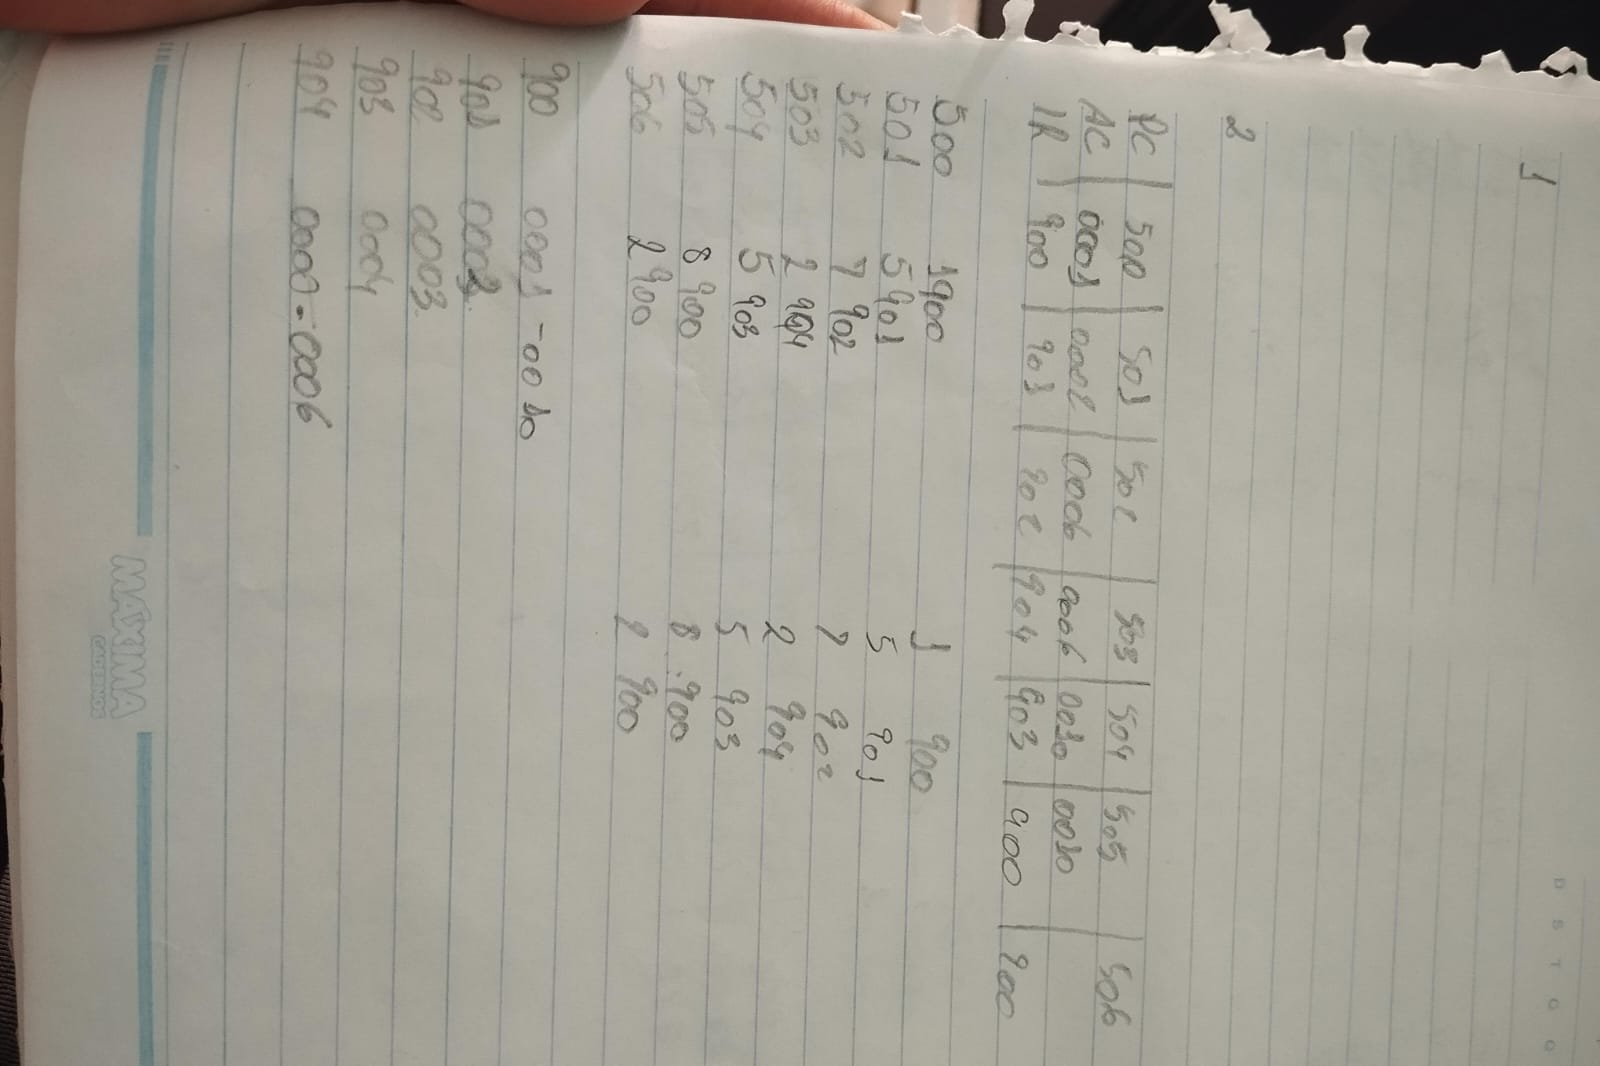 1
2
PC | 500 | 501 | 502 | 503 | 504 | 505 | 506
AC | 0001 | 0002 | 0006 | 0006 | 0010 | 0010
IR | 900 | 901 | 902 | 904 | 903 | 900 | 900
500 1900 1 900
501 5901 5 901
502 7 902 7 902
503 2 904 2 904
504 5 903 5 903
505 8 900 8 900
506 2 900 2 900
900 0001 - 0010
901 0002
902 0003
903 0004
904 0000 - 0006
D S T Q Q
MÁXIMA
CADERNOS